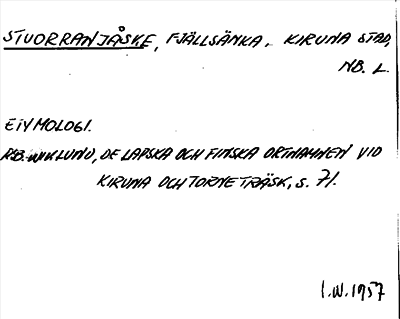 STUORRANJÅSKE, FJÄLLSÄNKA, KIRUNA STAD,
NB. L.
ETYMOLOGI.
K.B. WIKLUND, DE LAPSKA OCH FINSKA ORTNAMNEN VID
KIRUNA OCH TORNETRÄSK, S. 71.
I.W. 1957